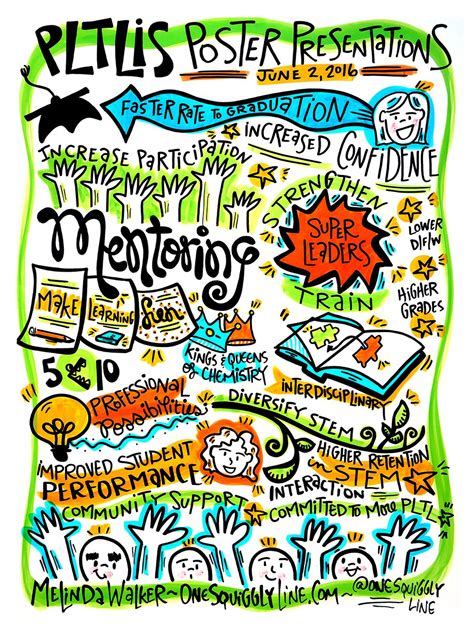 PLTLIS POSTER PRESENTATIONS
JUNE 2, 2016
FASTER RATE TO GRADUATION
INCREASED CONFIDENCE
INCREASE PARTICIPATION
STRENGTHEN
SUPER
LEADERS
TRAIN
LOWER
D/F/W
HIGHER
GRADES
Mentoring
MAKE LEARNING fun
KINGS & QUEENS
OF CHEMISTRY
INTERDISCIPLINARY
5 10
PROFESSIONAL
POSSIBILITIES
DIVERSIFY STEM
IMPROVED STUDENT
PERFORMANCE
HIGHER RETENTION
in STEM
INTERACTION
COMMUNITY SUPPORT
COMMITTED TO MORE PLTL
MELINDA WALKER~ONESQUIGGLYLINE.COM~@ONESQUIGGLY
LINE